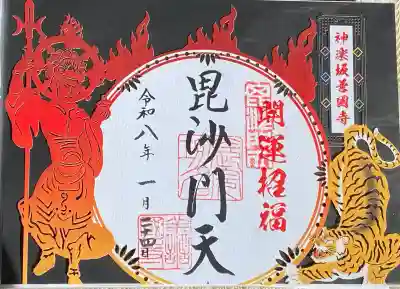 神楽坂善國寺
開運招福
毘沙門天
令和八年
一月
二十四日